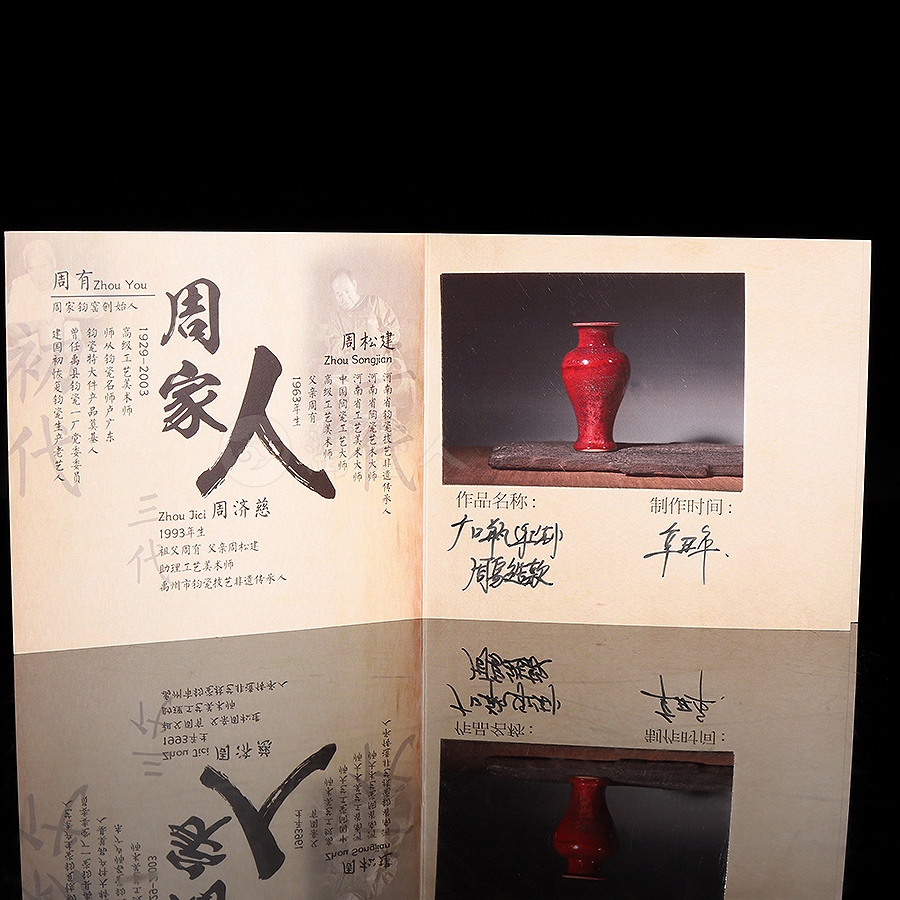 周有 Zhou You
周家钧窑创始人
1929-2003
高级工艺美术师
师从钧瓷名师卢广东
钧瓷特大件产品奠基人
曾任禹县钧瓷一厂党委委员
建国初恢复钧瓷生产老艺人
初代
周家人
周松建
Zhou Songjian
河南省钧瓷技艺非遗传承人
河南省陶瓷艺术大师
河南省工艺美术大师
中国陶瓷工艺大师
高级工艺美术师
父亲周有
1963年生
二代
三代
Zhou Jici 周济慈
1993年生
祖父周有 父亲周松建
助理工艺美术师
禹州市钧瓷技艺非遗传承人
作品名称：
制作时间：
辛丑年.